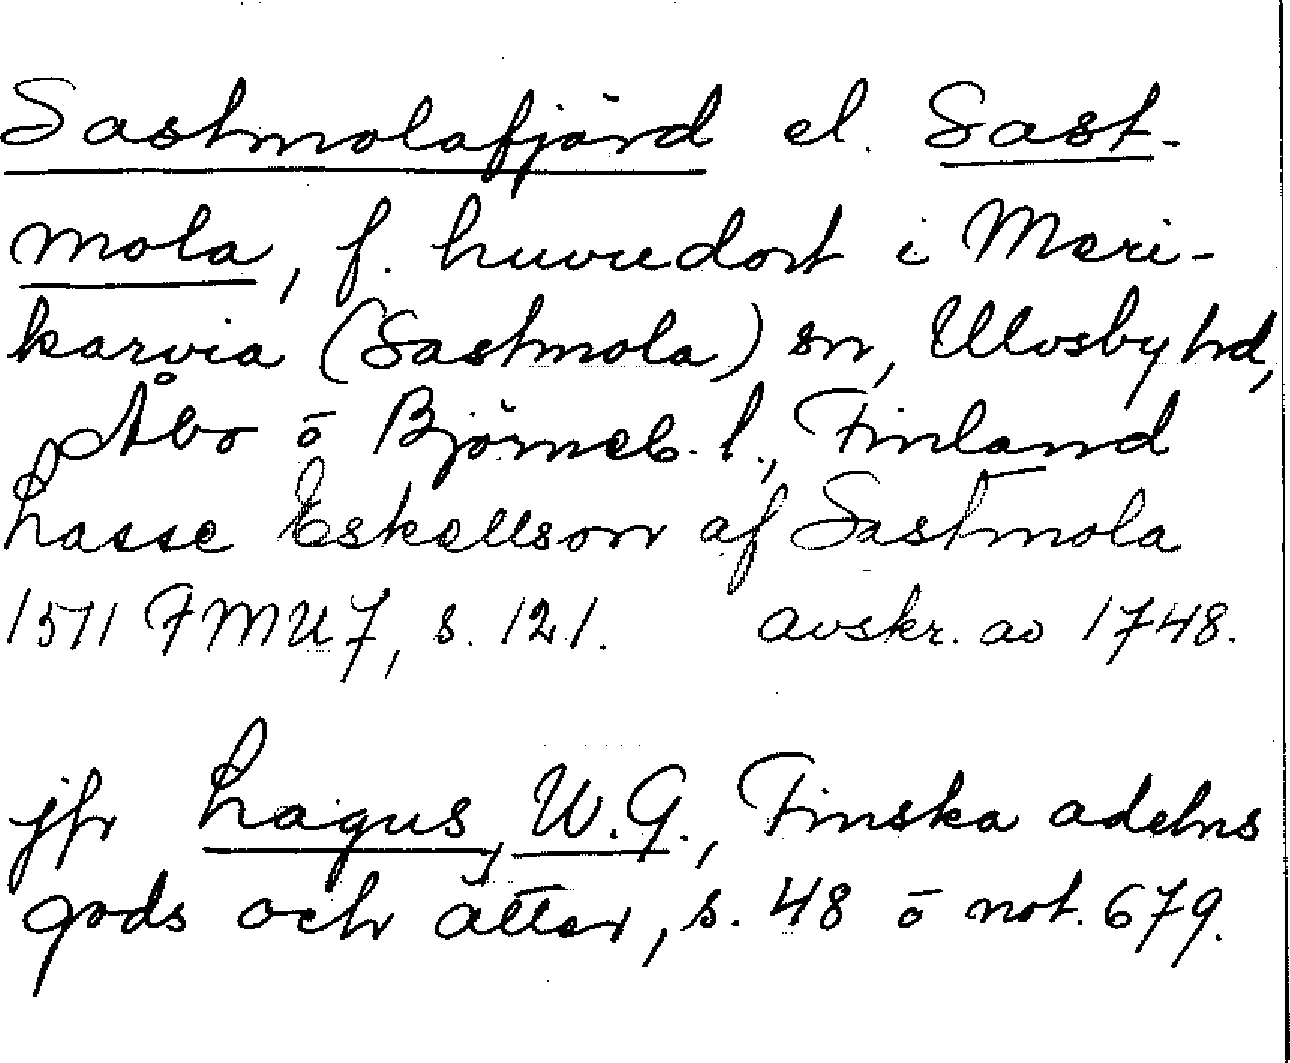 Sastmolafjärd el. Sast-
mola, f. huvudort i Meri-
karvia (Sastmola) sn, Ulvsby hd,
Åbo o Björneb. l., Finland
Lasse Eskellson af Sastmola
1571 FMU7, s. 121. avskr. av 1748.
jfr Lagus, W.G., Finska adelns
gods och ätter, s. 48 o not. 679.